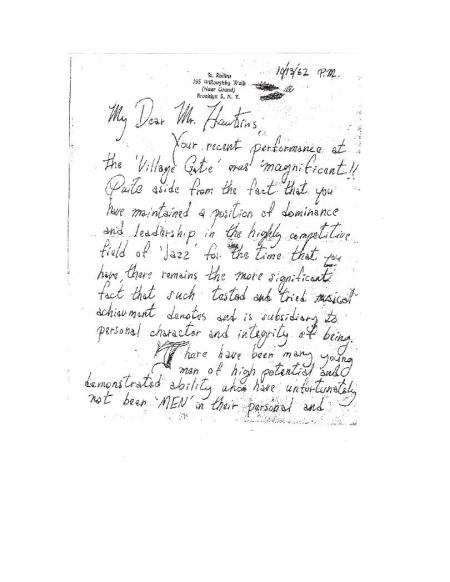 So. Rollins
195 Willoughby Walk
(Near Grand)
Brooklyn 5, N. Y.
10/13/62 P.M.
My Dear Mr. Hawkins,
Your recent performance at
the 'Village Gate' was magnificent!!
Quite aside from the fact that you
have maintained a position of dominance
and leadership in the highly competitive
field of 'Jazz' for the time that you
have, there remains the more significant
fact that such tested and tried musical
achievment denotes and is subsidiary to
personal character and integrity of being.
There have been many young
men of high potential and
demonstrated ability who have unfortunately
not been 'MEN' in their personal and